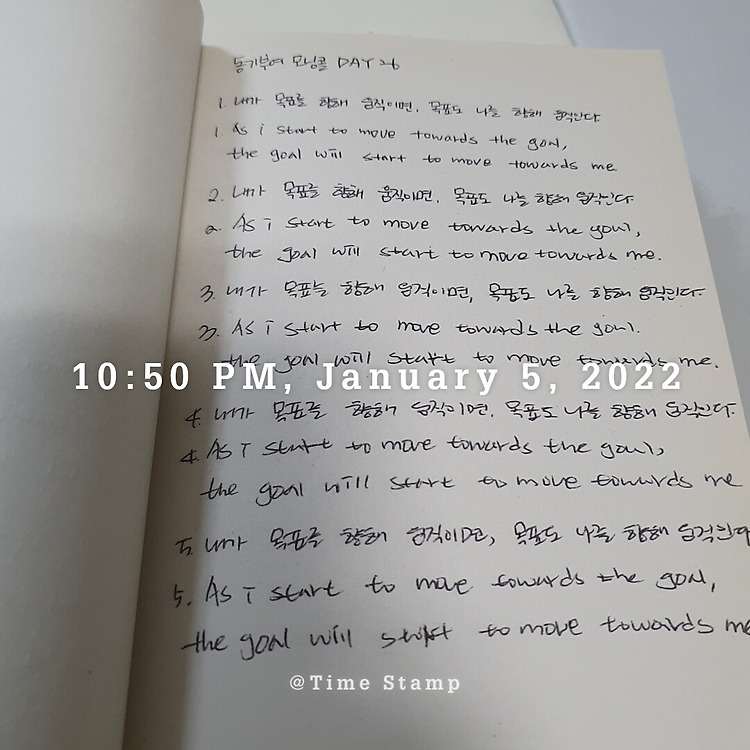 동기부여 모닝콜 DAY 26
1. 내가 목표를 향해 움직이면, 목표도 나를 향해 움직인다
1. As i start to move towards the goal,
the goal will start to move towards me
2. 내가 목표를 향해 움직이면, 목표도 나를 향해 움직인다.
2. As i start to move towards the goal,
the goal will start to move towards me.
3. 내가 목표를 향해 움직이면, 목표도 나를 향해 움직인다.
3. As i start to move towards the goal.
the goal will start to move towards me.
10:50 PM, January 5, 2022
4. 내가 목표를 향해 움직이면, 목표도 나를 향해 움직인다.
4. As i start to move towards the goal,
the goal will start to move towards me
5. 내가 목표를 향해 움직이면, 목표도 나를 향해 움직인다
5. As i start to move towards the goal,
the goal will start to move towards me
@Time Stamp